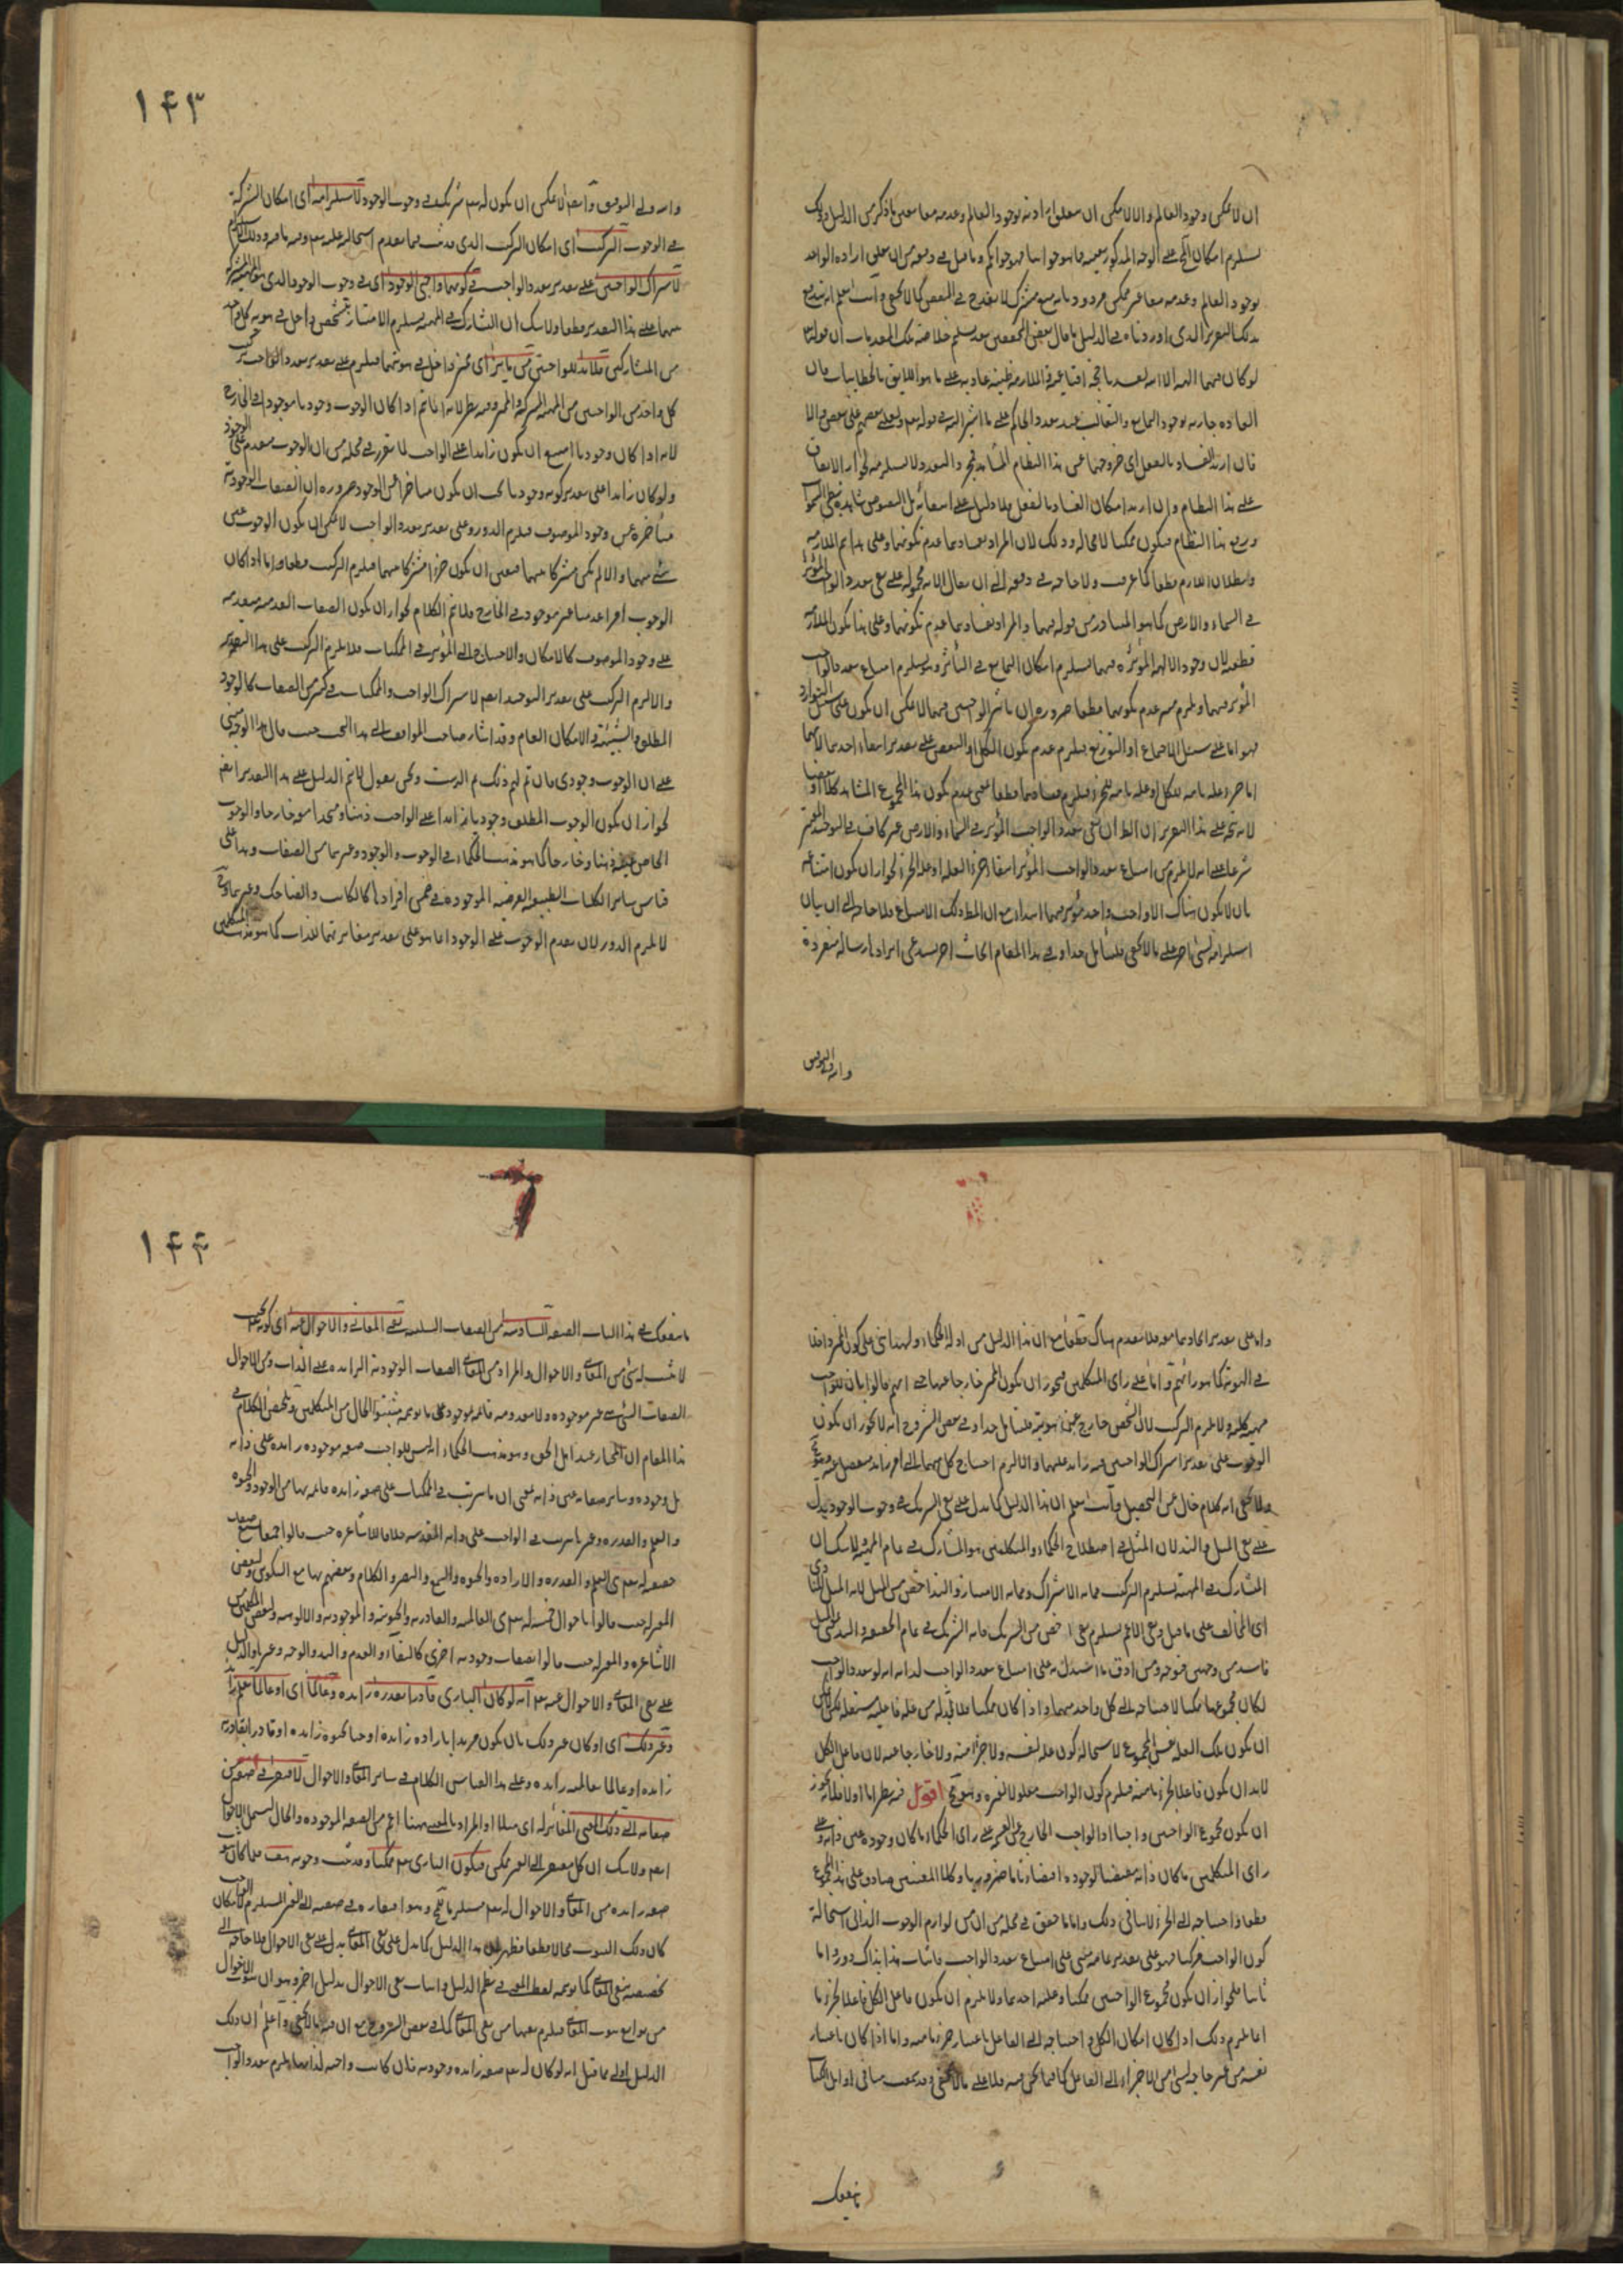 ان لا يمكن وجود العالم والا لامكن ان يتعلق ارادته بوجود العالم وعدمه معا بعين ما ذكر من الدليل وذلك
يستلزم امكان المحال على الوجه المذكور بعينه فما هو جوابنا فهو جوابكم وما قيل في دفعه من ان تعلق ارادة الواحد
بوجود العالم وعدمه معا غير ممكن مردود بانه منع مشترك لا يقدح في النقض كما لا يخفى وانت تعلم انه يندفع
بذلك التقرير الذي اوردناه في الدليل ما قال بعض المحققين بعد تسليم خلاصة تلك المقدمات ان قوله تع
لو كان فيهما الهة الا الله لفسدتا حجة اقناعية والملازمة ظنية عادية على ما هو اللايق بالخطابيات فان
العادة جارية بوجود التمانع والتغالب عند تعدد الحاكم على ما اشير اليه في قوله تع ولعلى بعضهم على بعض والا
فان اريد الفساد بالفعل اي خروجهما عن هذا النظام المشاهد فمجرد التعدد لا يستلزمه لجواز الاتفاق
على هذا النظام وان اريد امكان الفساد بالفعل فلا دليل على انتفائه بل النصوص شاهدة بطي السموات
ورفع هذا النظام فيكون ممكنا لا محالة وذلك لان المراد بفسادهما عدم تكونهما وعلى هذا تم الملازمة
وبطلان اللازم قطعا كما عرفت ولا حاجة في دفعه الى ان يقال الاية محمولة على نفي تعدد الواجب المؤثر
في السماء والارض كما هو المتبادر من قوله فيهما والمراد بفسادهما عدم تكونهما وعلى هذا تكون الملازمة
قطعية لان وجود الالهة المؤثرة فيهما يستلزم امكان التمانع في التأثير وهو يستلزم امتناع تعدد الواجب
المؤثر فيهما ويلزم منه عدم تكونهما قطعا ضرورة ان تأثير الواجبين فيهما لا يمكن ان يكون على سبيل التوارد
فهو اما على سبيل الاجتماع او التوزيع فيلزم عدم تكون الكل او البعض على تقدير انتفاء احدهما لانهما
اما جزء علة تامة للكل او علة تامة للجزء فيلزم فسادهما قطعا بمعنى عدم تكون هذا المجموع المشاهد كلا او بعضا
لانه يتجه على هذا التقرير ان
شرعا على انه لا يلزم من امتناع تعدد الواجب المؤثر انتفاء جزء العلة او علة الجزء لجواز ان يكون امتناعه
بان لا يكون هناك الا واجب واحد مؤثر فيهما ابتداء مع ان المط ذلك الامتناع فلا حاجة الى ان بيان
استلزامه لشيء اخر على ما لا يخفى فليتأمل جدا وفي هذا المقام ابحاث اخر يستدعي ايرادها رسالة منفردة
والله ولي التوفيق
١٤٣
والله ولي التوفيق وايضا لا يمكن ان يكون له تع شريك في وجوب الوجود لاستلزامه اي امكان الشركة
في الوجوب التركيب اي امكان التركيب الذي قد ثبت فيما تقدم استحالته عليه تع
لاشتراك الواجبين على تقدير تعدد الواجب في كونهما واجبي الوجود اي في وجوب الوجود الذي
بينهما على هذا التقدير قطعا ولا شك ان التشارك في المهية يستلزم الامتياز بتشخص داخل في هوية كل واحد
من المتشاركين فلا بد للواجبين من مايز اي مميز داخل في هويتهما فيلزم على تقدير تعدد الواجب تركيب
كل واحد من الواجبين من المهية المشتركة والمميز وفيه نظر لانه انما يتم اذا كان الوجوب وجوديا موجودا في الخارج
لانه اذا كان وجوديا امتنع ان يكون زايدا على الواجب لما تقرر في محله من ان الوجوب متقدم على الوجود
ولو كان زايدا على تقدير كونه وجوديا يجب ان يكون متاخرا عن الوجود ضرورة ان الصفات الوجودية
متأخرة عن وجود الموصوف فيلزم الدور وعلى تقدير تعدد الواجب لا يمكن ان يكون الوجوب عين
شيء منهما والا لم يكن مشتركا بينهما فتعين ان يكون جزءا مشتركا بينهما فيلزم التركيب قطعا واما اذا كان
الوجوب امرا عدميا غير موجود في الخارج فلا يتم الكلام لجواز ان يكون الصفات العدمية متقدمة
على وجود الموصوف كالامكان والاحتياج الى المؤثر في الممكنات فلا يلزم التركيب على هذا التقدير
والا لزم التركيب على تقدير التوحيد ايضا لاشتراك الواجب والممكنات في كثير من الصفات كالوجود
المطلق والشيئية والامكان العام وقد اشار صاحب المواقف الى هذا البحث حيث قال هذا الوجه مبني
على ان الوجوب وجودي فان تم لهم ذلك تم الدست ونحن نقول لا يتم الدليل على هذا التقدير ايضا
لجواز ان يكون الوجوب المطلق وجوديا زايدا على الواجب ذهنا ومتحدا معه خارجا والوجوب
الخاص عينه ذهنا وخارجا كما هو مذهب الحكماء في الوجوب والوجود وغيرهما من الصفات وهذا على
قياس ساير الكليات الطبيعية العرضية الموجودة في ضمن افرادها كالكاتب والضاحك وغيرهما وح
لا يلزم الدور لان تقدم الوجوب على الوجود انما هو على تقدير مغايرتهما للذات كما هو مذهب المتكلمين
واما على تقدير اتحادهما معه فلا تقدم هناك قطعا مع ان هذا الدليل من ادلة الحكماء ولهذا بنى على كون المميز داخلا
في الهوية كما هو رأيهم واما على راي المتكلمين فيجوز ان يكون المميز خارجا عنها حتى انهم قالوا بان للواجب
مهية كلية ولا يلزم التركيب لان التشخص خارج عن هويته فليتأمل جدا وفي بعض الشروح انه لا يجوز ان يكون
الوجوب على تقدير اشتراك الواجبين فيه زايدا عليهما والا لزم احتياج كل منهما الى امر زايد منفصل عنه وهو مح
ولا يخفى انه كلام خال عن التحصيل وانت تعلم ان هذا الدليل كما يدل على نفي الشريك في وجوب الوجود يدل
على نفي المثل والند لان المثل في اصطلاح الحكماء والمتكلمين هو المشارك في تمام المهية ولا شك ان
التشارك في المهية يستلزم التركيب مما به الاشتراك ومما به الامتياز والند اخص من المثل لانه المثل المنادي
اي المخالف على ما قيل ونفي الاعم يستلزم نفي الاخص من الشريك فانه الشريك في تمام الحقيقة
فاسد من وجهين فتوجه ومن ادق ما استدل به على امتناع تعدد الواجب لذاته انه لو تعدد الواجب
لكان مجموعهما ممكنا لاحتياجه الى كل واحد منهما واذا كان ممكنا فلا بد له من علة فاعلية مستقلة
ان يكون تلك العلة نفس المجموع لاستحالة كون علة لنفسه ولا جزءا منه ولا خارجا عنه لان فاعل الكل
لا بد ان يكون فاعلا لجزء ما منه فيلزم كون الواجب معلولا لغيره وهو مح اقول فيه نظر اما اولا فلانه يجوز
ان يكون مجموع الواجبين واجبا اذ الواجب الخارج عن القسمة على رأي الحكماء ما كان وجوده عين ذاته وعلى
راي المتكلمين ما كان ذاته مقتضيا لوجوده اقتضاء تاما ضروريا وكلا المعنيين صادق على هذا المجموع
قطعا واحتياجه الى الجزء لا ينافي ذلك واما ما حقق في محله من ان من لوازم الوجوب الذاتي استحالة
كون الواجب مركبا فهو على تقدير تمامه مبني على امتناع تعدد الواجب فاثبات هذا بذاك دور واما
ثانيا فلجواز ان يكون مجموع الواجبين ممكنا وعلته احدهما ولا يلزم ان يكون فاعل الكل فاعلا لجزء ما
انما يلزم ذلك اذا كان امكان الكل واحتياجه الى الفاعل باعتبار جزء ما منه واما اذا كان باعتبار
نفسه من غير حاجة لشيء من الاجزاء الى الفاعل كما فيما نحن فيه فلا على ما لا يخفى وقد
ينفعك
١٤٤
ما ينفعك في هذا الباب الصفة السادسة من الصفات السلبية نفي المعاني والاحوال عنه اي كونه بحيث
لا يثبت له شيء من المعاني والاحوال والمراد من المعاني الصفات الوجودية الزايدة على الذات ومن الاحوال
الصفات التي هي غير موجودة ولا معدومة قائمة بموجود على ما توهمه مثبتوا الحال من المتكلمين وتلخيص الكلام في
هذا المقام ان المختار عند اهل الحق وهو مذهب الحكماء انه ليس للواجب صفة موجودة زايدة على ذاته
بل وجوده وساير صفاته عين ذاته بمعنى ان ما يترتب في الممكنات على صفة زايدة قائمة بها من الوجود والحيوة
والعلم والقدرة وغيرها يترتب في الواجب على ذاته المقدسة خلافا للاشاعرة حيث قالوا بسبع صفات
حقيقية له تع هي العلم والقدرة والارادة والحيوة والسمع والبصر والكلام وبعضهم بها مع التكوين ولبعض
المعتزلة حيث قالوا باحوال خمسة له تع هي العالمية والقادرية والحيية والموجودية والالوهية ولبعض المتكلمين من
الاشاعرة والمعتزلة حيث قالوا بصفات وجودية اخرى كالبقاء والقدم واليد والوجه وغيرها والدليل
على نفي المعاني والاحوال عنه تع انه لو كان الباري قادرا بقدرة زايدة وعالما اي او عالما بعلم زايد
وغير ذلك اي او كان غير ذلك بان يكون مريدا بارادة زايدة او حيا بحيوة زايدة او قادرا بقادرية
زايدة او عالما بعالمية زايدة وعلى هذا القياس الكلام في ساير المعاني والاحوال لافتقر في صفة من
صفاته الى ذلك المعنى المغاير له
ايضا ولا شك ان كل مفتقر الى الغير ممكن فيكون الباري تع ممكنا وقد ثبت وجوبه هف فلما كان ثبوت
صفة زايدة من المعاني والاحوال له تع مستلزما لمح وهو افتقاره في صفته الى الغير المستلزم لامكان الواجب
كان ذلك الثبوت محالا قطعا فظهر ان هذا الدليل كما يدل على نفي المعاني يدل على نفي الاحوال فلا حاجة الى
تخصيصه بنفي المعاني كما توهمه لفظ المعنى في نظم الدليل واثبات نفي الاحوال بدليل اخر وهو ان ثبوت الاحوال
من توابع ثبوت المعاني فيلزم نفيها من نفي المعاني كما في بعض الشروح مع ان فيه ما لا يخفى واعلم ان ذلك
الدليل اولى مما قيل انه لو كان له تع صفة زايدة وجودية فان كانت واجبة لذاتها يلزم تعدد الواجب